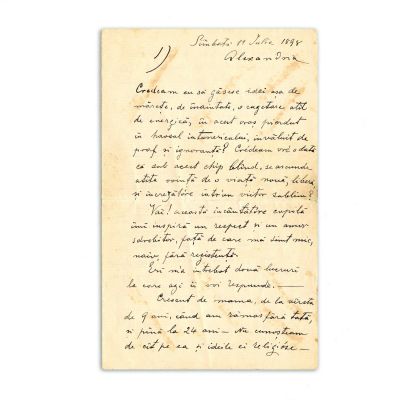 Sâmbătă 11 Iulie 1898
Alexandria
1)
Credeam eu să găsesc idei așa de
mărețe, de înaintate, o cugetare atât
de energică, în acest oraș pierdut
în haosul întunericului, învăluit de
praf și ignoranță? Credeam vr'o dată
că sub acest chip blând, se ascunde
atâta voință de o viață nouă, liberă
și încrezătoare într'un viitor sublim?
Vai! această încântătoare copilă
îmi inspiră un respect și un amor
sdrobitor, față de care mă simt mic,
naiv, fără rezistență.
Eri m'a întrebat două lucruri
la care azi îi voi respunde. —
Crescut de mama, de la vârsta
de 9 ani, când am rămas fără tată,
și până la 24 ani — Nu cunoșteam
de cât pe ea și ideile ei religióse —